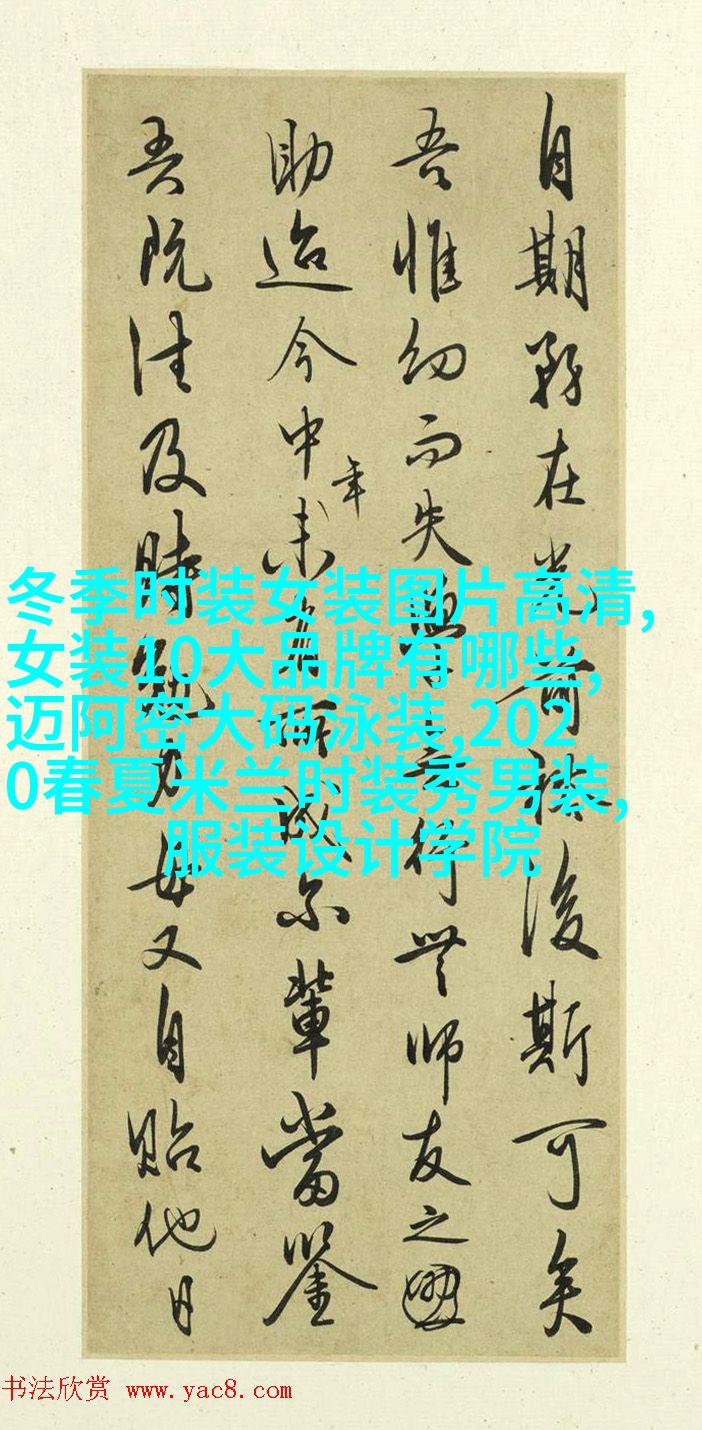 自期務在光前裕後斯可矣
吾惟幼而失學無行無師友之
助迨今中年未有所成尔輩當鑒
吾既往及時勉力毋又自貽他日
冬季时装女装图片高清,
女装10大品牌有哪些,
迈阿密大码泳装,202
0春夏米兰时装秀男装,
服装设计学院
书法欣赏 www.yac8.com